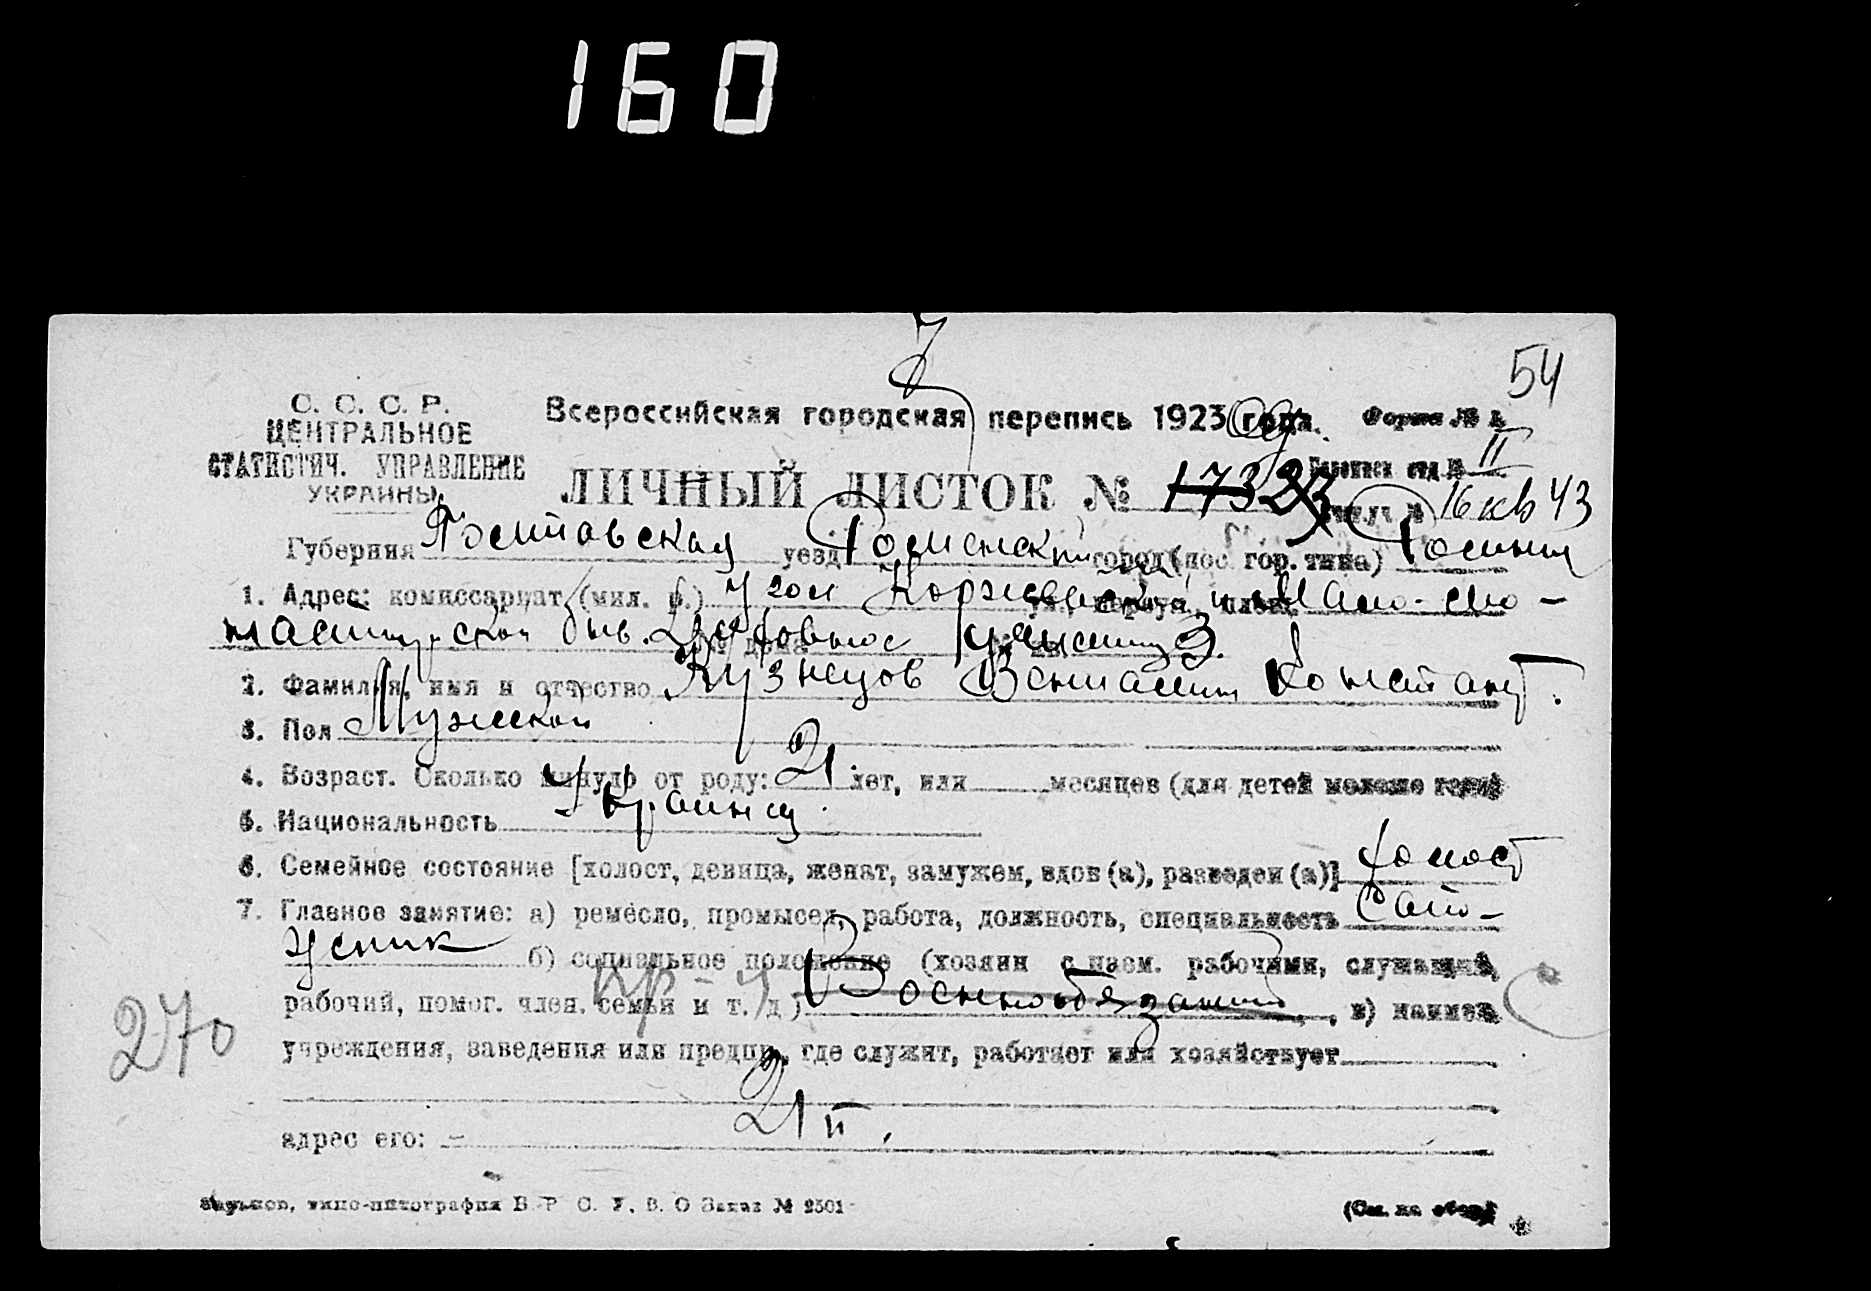 160
54
С. С. С. Р.
ЦЕНТРАЛЬНОЕ
СТАТИСТИЧ. УПРАВЛЕНИЕ
УКРАИНЫ
Всероссийская городская перепись 1923 года.
Форма № 1
II
ЛИЧНЫЙ ЛИСТОК №
16 кв 43
Губерния Полтавская уезд Роменский город (пос. гор. типа) Ромны
1. Адрес: комиссариат (мил. р.) угол Коржевской и Мало-
быв.
2. Фамилия, имя и отчество Кузнецов Вениамин Констант.
3. Пол Мужской
4. Возраст. Сколько минуло от роду: 21 лет, или месяцев (для детей моложе года)
5. Национальность Украинец
6. Семейное состояние [холост, девица, женат, замужем, вдов (а), разведен (а)] холост
7. Главное занятие: а) ремесло, промысел, работа, должность, специальность Сапо-
жник б) социальное положение (хозяин с наем. рабочими, служащий,
рабочий, помог. член. семьи и т. д.) Военнообязаный, в) наимен.
270
учреждения, заведения или предпр., где служит, работает или хозяйствует
21 п.
адрес его: –
Харьков, типо-литография В. Р С. У. В. О Заказ № 2501
(См. на обор.)